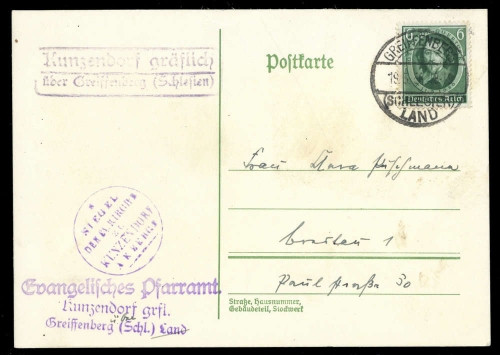 Kunzendorf gräflich
über Greiffenberg (Schlesien)
Postkarte
GREIFFENBERG
(SCHLESIEN)
LAND
6
Deutsches Reich
Frau Clara Püschmann
Breslau 1
Paul straße 30
Straße, Hausnummer,
Gebäudeteil, Stockwerk
SIEGEL
DER EV. KIRCHE
ZU
KUNZENDORF
Evangelisches Pfarramt.
Kunzendorf grfl.
über
Greiffenberg (Schl.) Land